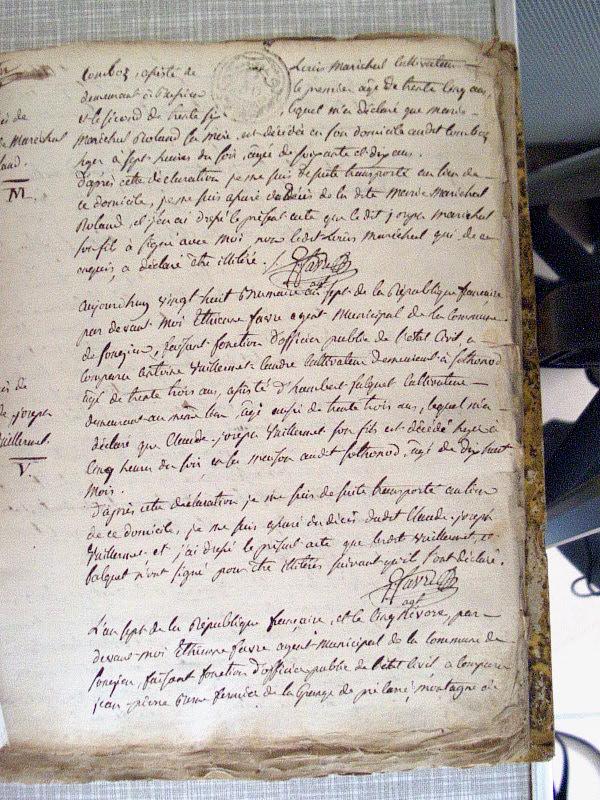 de
Maréchal
land.
M.
Lomboz, assisté de Louis Maréchal cultivateur
demeurant à le premier âgé de trente cinq ans,
et le second de trente lequel m'a déclaré que marie
Maréchal Roland sa mère, est décédée en son domicile audit Lomboz
hyer à sept heures du soir, agée de soixante et dix ans.
d'après cette déclaration je me suis de suite transporté au lieu de
ce domicile, je me suis assuré du Décès de la dite Marie Maréchal
Roland, et j'en ai dressé le présent acte que ledit joseph Maréchal
son fils à signé avec moi, non ledit Louis Maréchal qui, de ce
enquis, a déclaré être illitéré. /. Favre
agt
aujourdhuy vingt huit Brumaire an sept de la République française
par devant moi Etienne favre agent Municipal de la Commune
de Songieu, faisant fonction d'officier public de l'état Civil, a
Comparu antoine Vuillermet Cultivateur demeurant à Sothonod
âgé de trente trois ans, assisté d'humbert jalquet Cultivateur
demeurant au même lieu, âgé aussi de trente trois ans, lequel m'a
déclaré que Claude joseph Vuillermet son fils est décédé hyer à
Cinq heures du soir en sa maison audit Sothonod, âgé de dix huit
mois.
de
joseph
Vuillermet.
V.
D'après cette déclaration je me suis de suite transporté au lieu
de ce domicile, je me suis assuré du décès dudit Claude joseph
Vuillermet et j'ai dressé le présent acte que ledit Vuillermet, et
n'ont signé pour être illitérés suivant qu'ils l'ont déclaré.
Favre
agt
L'an sept de la République française, et le Cinq Nivose, par
devant moi Etienne favre agent Municipal de la Commune de
Songieu, faisant fonction d'officier public de l'état Civil, a Comparu
jean pierre fermier de la Grange de montagne de